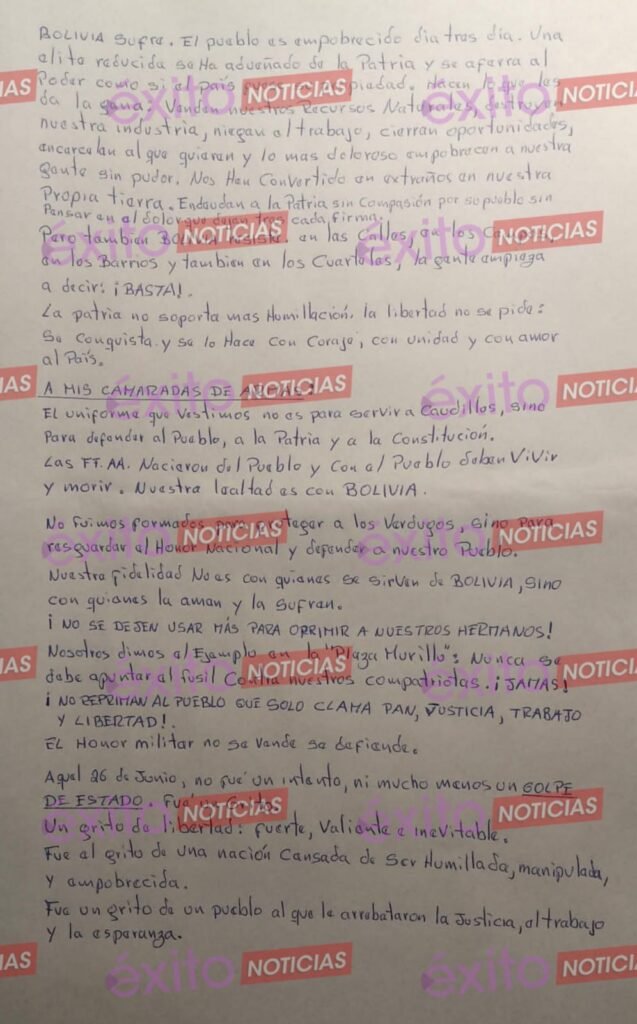 BOLIVIA Sufre. El pueblo es empobrecido dia tras dia. Una
elite reducida se Ha adueñado de la Patria y se aferra al
Poder como si el país fuese su propiedad. Hacen lo que les
da la gana: Venden nuestros Recursos Naturales, destruyen
nuestra industria, niegan el trabajo, cierran oportunidades,
encarcelan al que quieren y lo mas doloroso empobrecen a nuestra
gente sin pudor. Nos Han Convertido en extraños en nuestra
Propia tierra. Endeudan a la Patria sin Compasión por su pueblo sin
Pensar en el dolor que dejan tras cada firma.
Pero tambien BOLIVIA resiste. en las Calles, en los Campos,
en los Barrios y tambien en los Cuarteles, la gente empieza
a decir: ¡BASTA!.
La patria no soporta mas Humillación. la libertad no se pide:
Se Conquista. y se lo Hace con Coraje, con unidad y con amor
al País.
A MIS CAMARADAS DE ARMAS:
El uniforme que vestimos no es para servir a Caudillos, sino
Para defender al Pueblo, a la Patria y a la Constitución.
Las FF.AA. Nacieron del Pueblo y Con el Pueblo deben ViVir
y morir. Nuestra lealtad es con BOLIVIA.
No fuimos formados para proteger a los Verdugos, Sino Para
resguardar el Honor Nacional y defender a nuestro Pueblo.
Nuestra fidelidad No es con quienes se sirven de BOLIVIA, sino
con quienes la aman y la sufren.
¡ NO SE DEJEN USAR MÁS PARA OPRIMIR A NUESTROS HERMANOS!
Nosotros dimos el Ejemplo en la "Plaza Murillo": Nunca se
debe apuntar el fusil Contra nuestros compatriotas. ¡JAMAS!
¡ NO REPRIMAN AL PUEBLO QUE SOLO CLAMA PAN, JUSTICIA, TRABAJO
Y LIBERTAD!.
EL Honor militar no se vende se defiende.
Aquel 26 de Junio, no fué un intento, ni mucho menos un GOLPE
DE ESTADO. Fué un Grito.
Un grito de libertad: fuerte, Valiente e ineVitable.
Fue el grito de una nación Cansada de Ser Humillada, manipulada,
y empobrecida.
Fue un grito de un pueblo al que le arrebataron la Justicia, el trabajo
y la esperanza.
éxito NOTICIAS